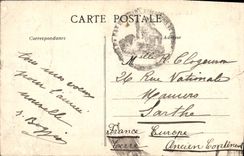 CARTE POSTALE
Correspondance
Adresse
Tous mes voeux
pour l'année
nouvelle
Melle H. Clogenson
26 Rue Nationale
Mamers
Sarthe
France Europe
Terre Ancien Continent